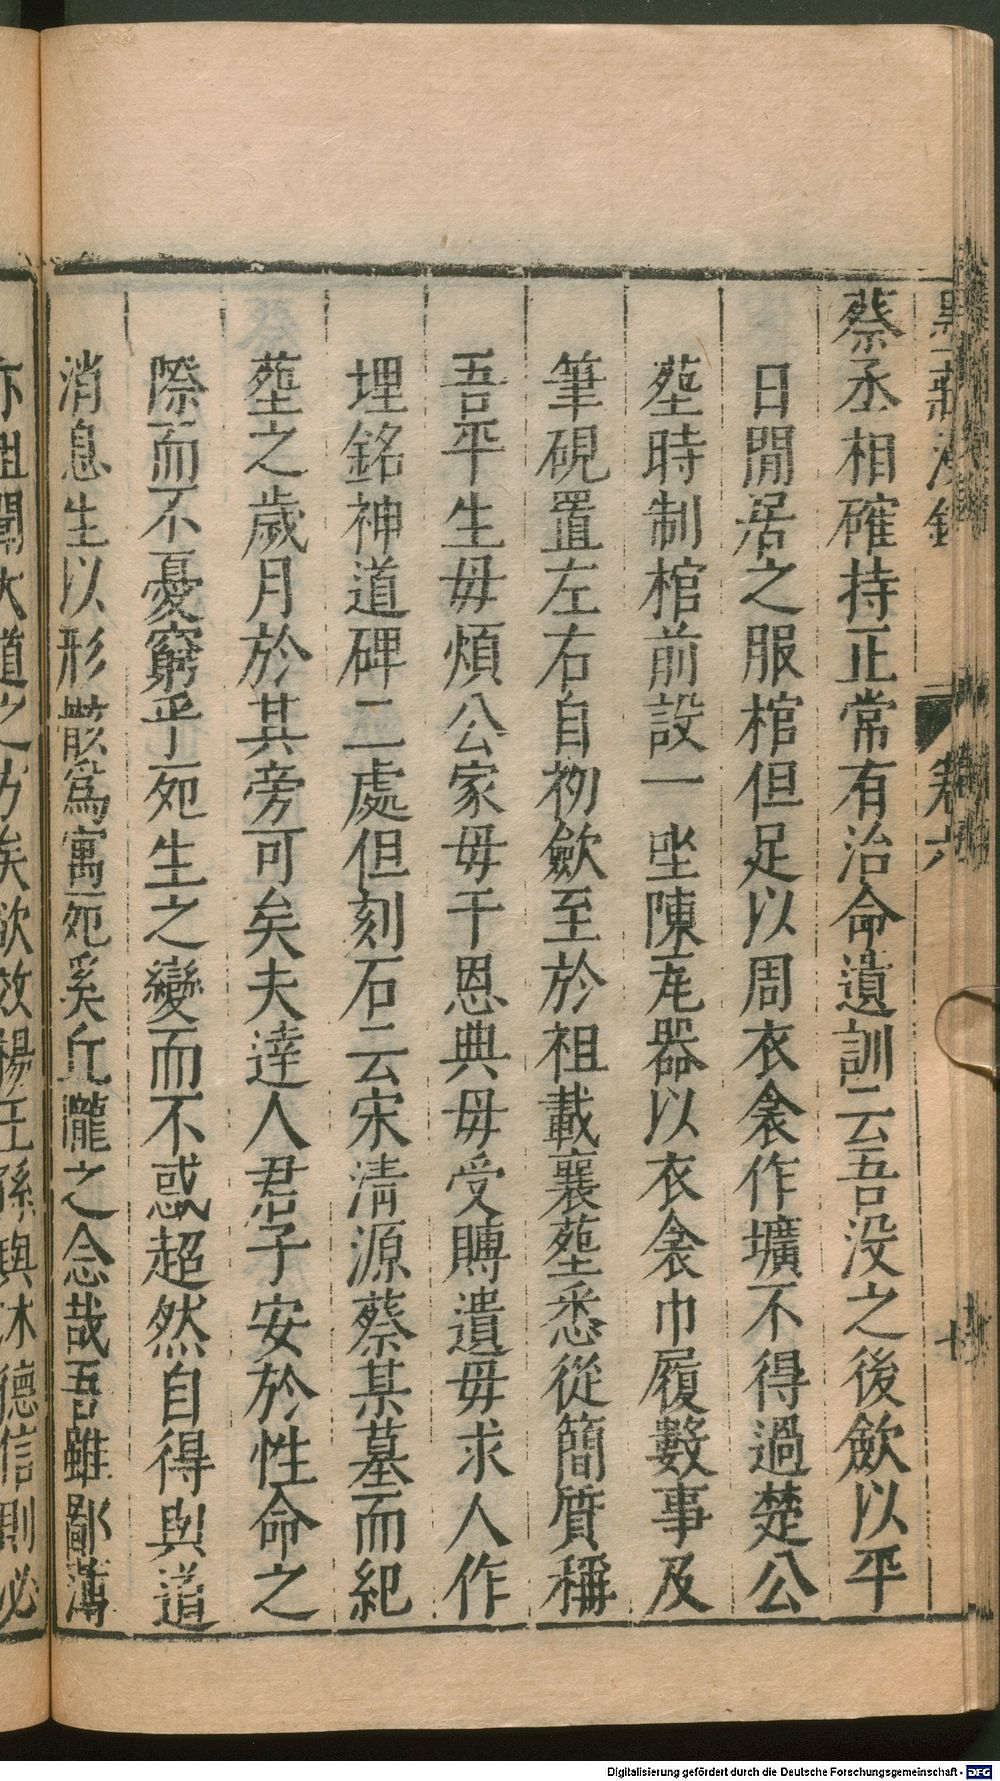 蔡丞相確持正常有治命遺訓云吾沒之後歛以平
日閒居之服棺但足以周衣衾作壙不得過楚公
塟時制棺前設一㘴陳瓦器以衣衾巾履數事及
筆硯置左右自初歛至於祖載襄塟悉從簡質稱
吾平生毋煩公家毋干恩典毋受賻遺毋求人作
埋銘神道碑二處但刻石云宋清源蔡某墓而紀
塟之歲月於其旁可矣夫達人君子安於性命之
際而不憂窮乎死生之變而不惑超然自得與道
消息生以形骸爲寓死奚丘隴之念哉吾雖鄙薄
亦且聞大道之方矣欲效楊王孫與沐德信則必
卷六
Digitalisierung gefördert durch die Deutsche Forschungsgemeinschaft - DFG